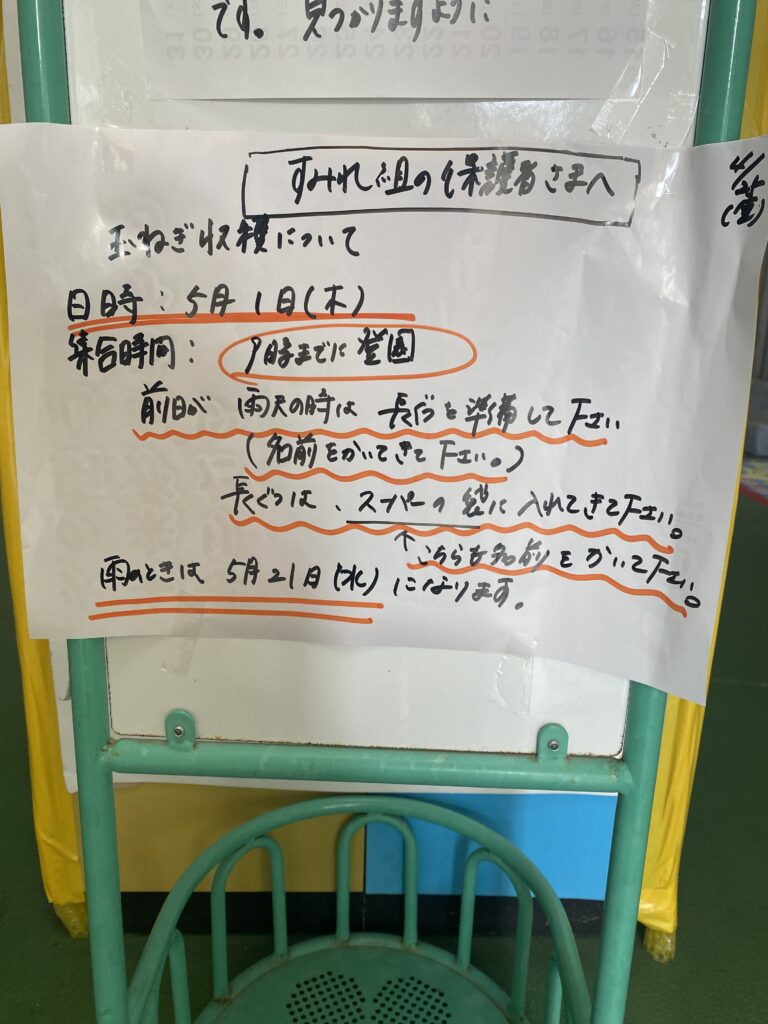 です。見つかりますように
4/25
(金)
すみれ組の保護者さまへ
玉ねぎ収穫について
日時：5月1日(木)
集合時間：9時までに登園
前日が雨天の時は長ぐつを準備して下さい
(名前をかいてきて下さい。)
長ぐつは、スーパーの袋に入れてきて下さい。
↑こちらも名前をかいて下さい。
雨のときは5月21日(水)になります。